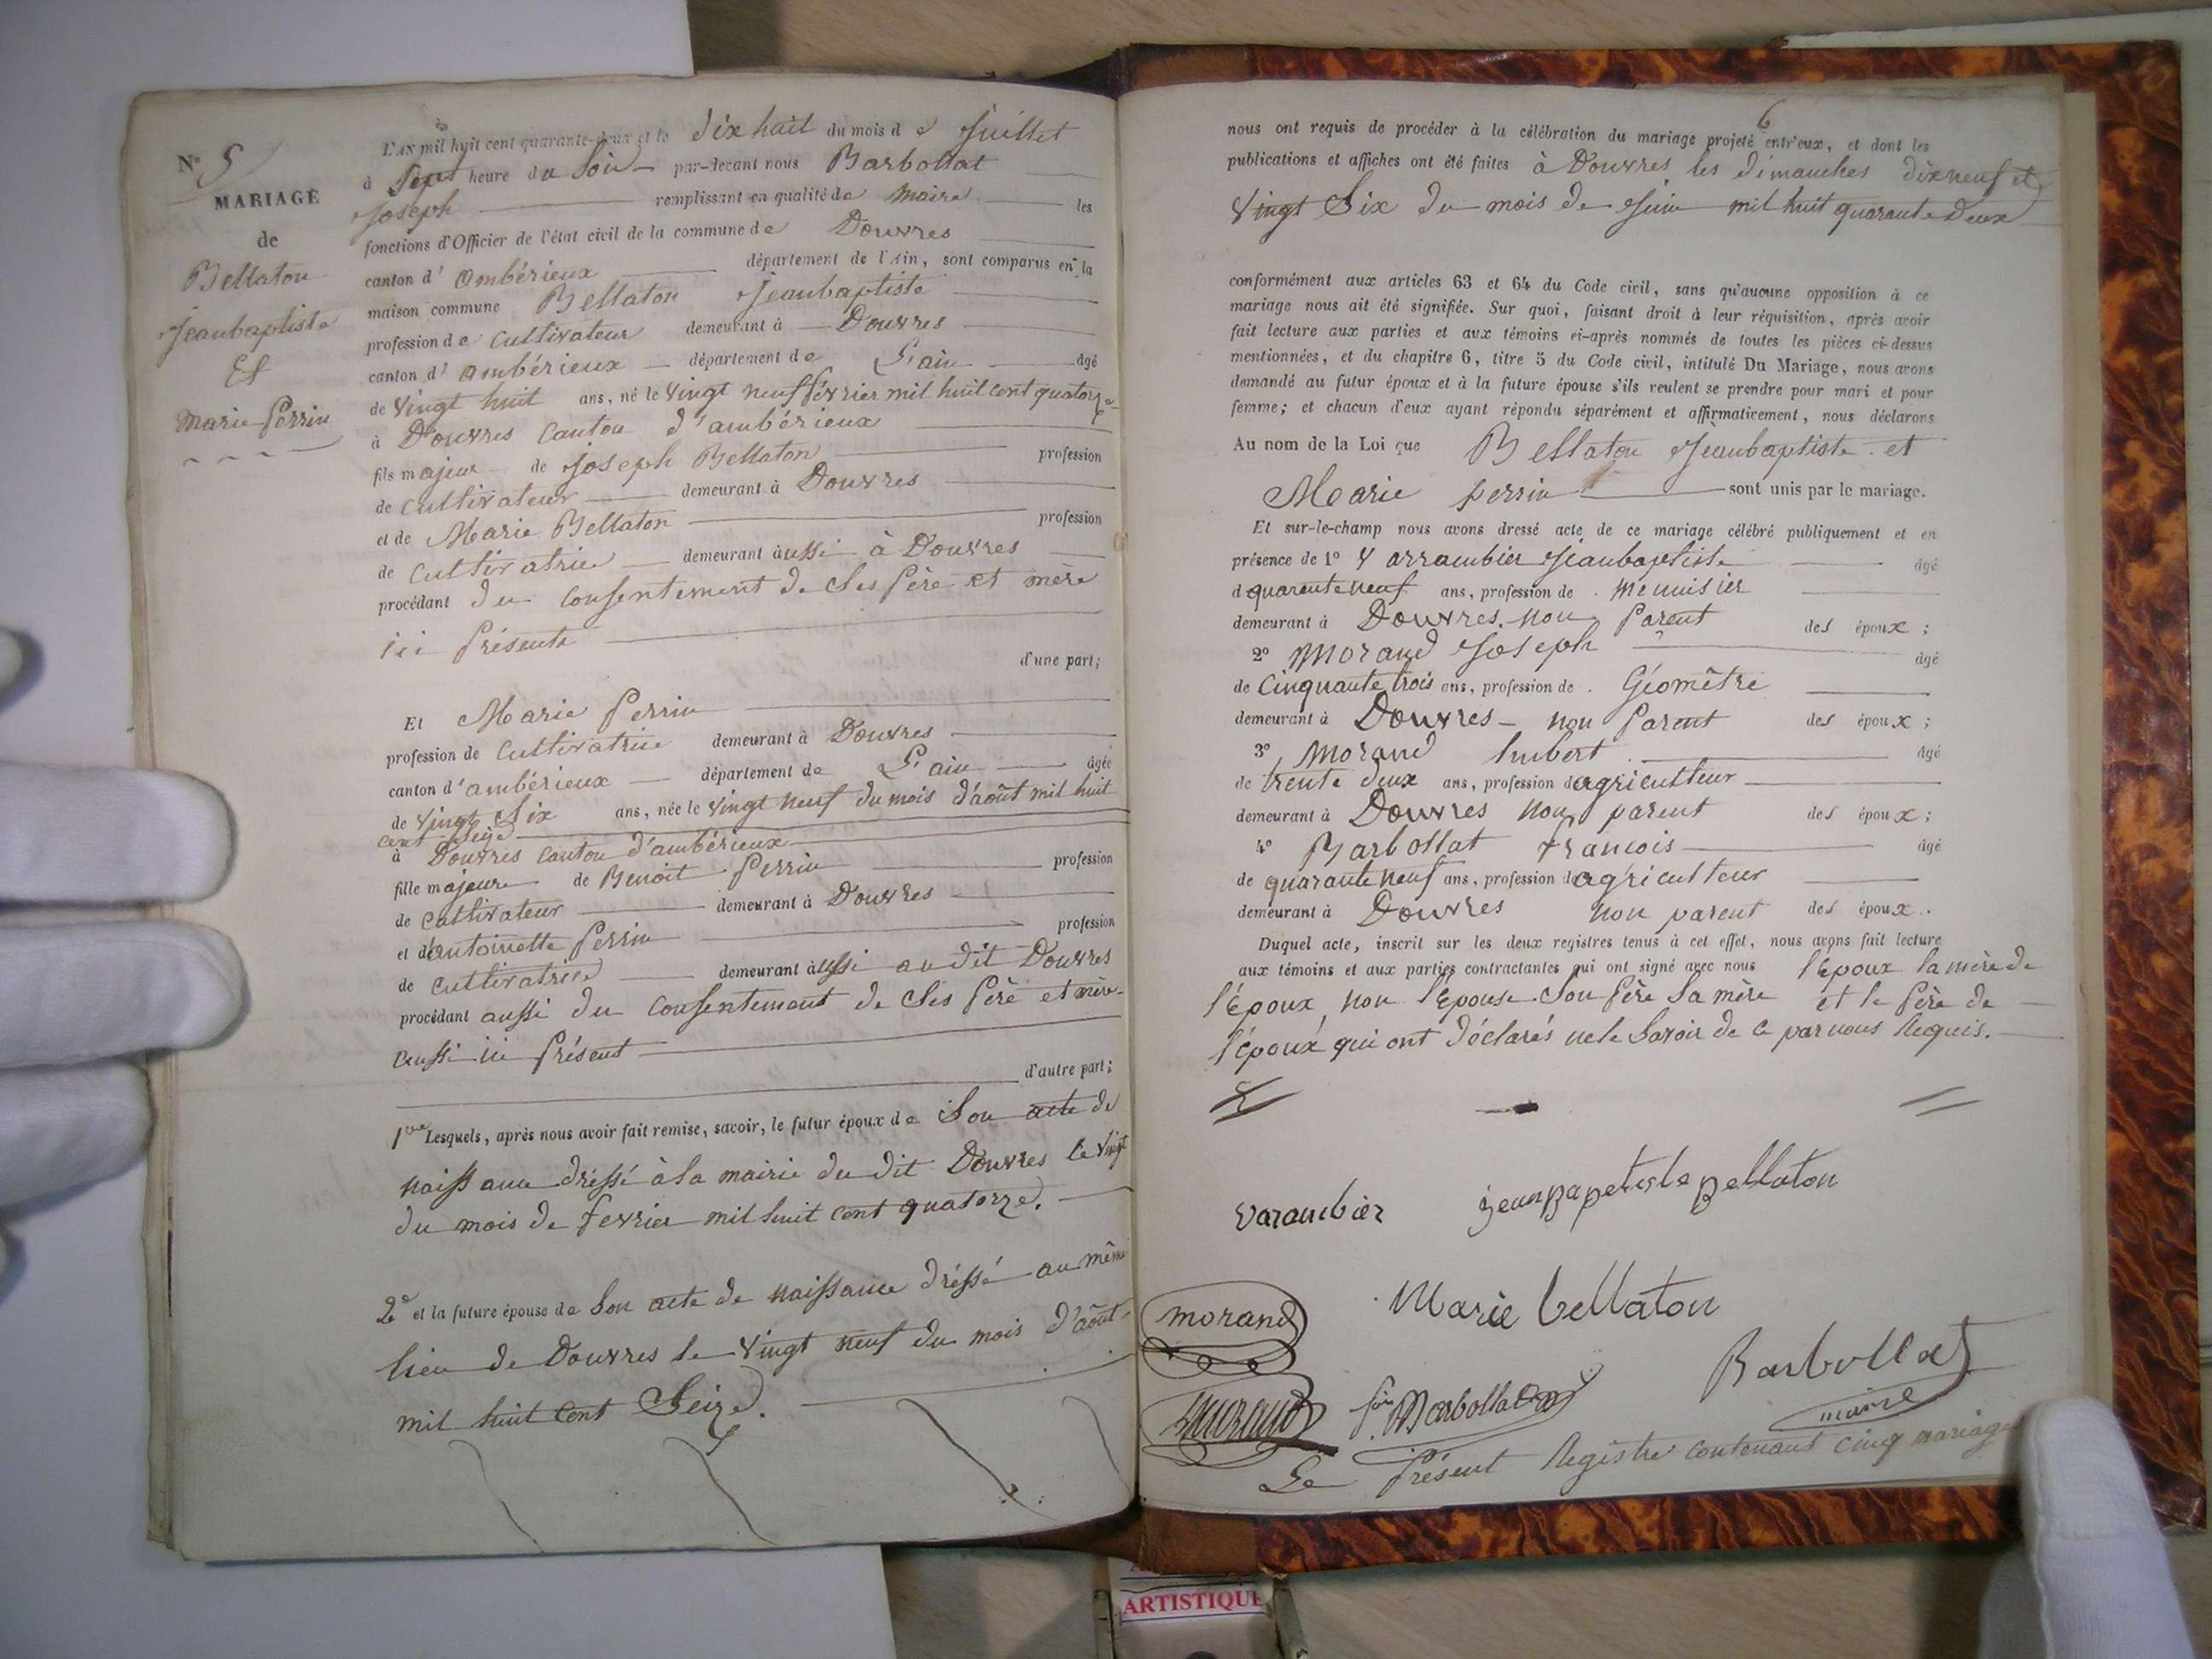 N° 5
MARIAGE
de
Bellaton
Jeanbaptiste
Et
Marie Perrin
L'AN mil huit cent quarante-deux et le dix huit du mois de Juillet
à Sept heure du Soir par-devant nous Barbollat
Joseph remplissant en qualité de maire les
fonctions d'Officier de l'état civil de la commune de Douvres
canton d' ambérieux département de l'Ain, sont comparus en la
maison commune Bellaton Jeanbaptiste
profession de cultivateur demeurant à Douvres
canton d' ambérieux département de L'ain âgé
de Vingt huit ans, né le Vingt neuf février mil huit cent quatorze
à Douvres Canton d'ambérieux
fils majeur de Joseph Bellaton profession
de cultivateur demeurant à Douvres
et de Marie Bellaton profession
de cultivatrice demeurant aussi à Douvres
procédant du consentement de Ses père et mère
ici présents
d'une part;
Et Marie Perrin
profession de cultivatrice demeurant à Douvres
canton d'ambérieux département de L'ain âgée
de Vingt Six ans, née le Vingt neuf du mois d'août mil huit
cent Seize
à Douvres canton d'ambérieux
fille majeure de Benoit Perrin profession
de cultivateur demeurant à Douvres
et d'antoinette Perrin profession
de cultivatrice demeurant aussi au dit Douvres
procédant aussi du consentement de Ses père et mère
aussi ici présent
d'autre part;
Lesquels, après nous avoir fait remise, savoir, le futur époux de Son acte de
naissance dréssé à la mairie du dit Douvres le vingt
du mois de fevrier mil huit cent quatorze.
2° et la future épouse de Son acte de naissance dréssé au même
lieu de Douvres le Vingt neuf du mois d'août
mil huit cent Seize.
6
nous ont requis de procéder à la célébration du mariage projeté entr'eux, et dont les
publications et affiches ont été faites à Douvres les dimanches dixneuf et
Vingt Six du mois de Juin mil huit quarante deux
conformément aux articles 63 et 64 du Code civil, sans qu'aucune opposition à ce
mariage nous ait été signifiée. Sur quoi, faisant droit à leur réquisition, après avoir
fait lecture aux parties et aux témoins ci-après nommés de toutes les pièces ci-dessus
mentionnées, et du chapitre 6, titre 5 du Code civil, intitulé Du Mariage, nous avons
demandé au futur époux et à la future épouse s'ils veulent se prendre pour mari et pour
femme; et chacun d'eux ayant répondu séparément et affirmativement, nous déclarons
Au nom de la Loi que Bellaton Jeanbaptiste et
Marie perrin sont unis par le mariage.
Et sur-le-champ nous avons dressé acte de ce mariage célébré publiquement et en
présence de 1° Varrambier Jeanbaptiste âgé
d quarante neuf ans, profession de menuisier
demeurant à Douvres non parent des époux;
2° Morand Joseph âgé
de Cinquante trois ans, profession de Géomètre
demeurant à Douvres non parent des époux;
3° Morand hubert âgé
de trente deux ans, profession d'agriculteur
demeurant à Douvres non parent des époux;
4° Barbollat francois âgé
de quarante neuf ans, profession d'agriculteur
demeurant à Douvres non parent des époux.
Duquel acte, inscrit sur les deux registres tenus à cet effet, nous avons fait lecture
aux témoins et aux parties contractantes qui ont signé avec nous l'époux la mère de
l'époux, non l'épouse Son père Sa mère et le père de
l'époux qui ont déclarés ne le Savoir de ce par nous Requis.
varambier
jeanBapetiste Bellaton
Marie bellaton
morand
Barbollat
maire
Morand
Barbollat
Le Présent Registre contenant cinq mariages
ARTISTIQUE